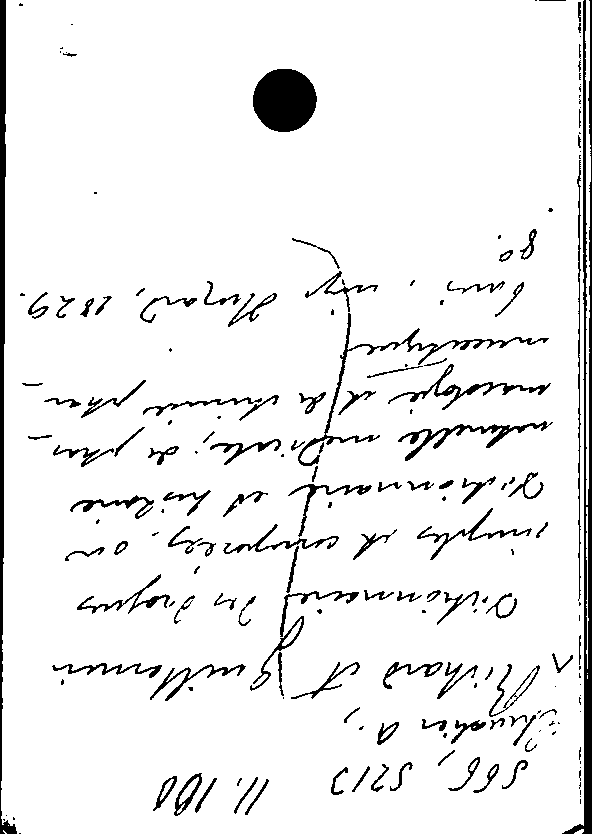 S66, S213 11.100
Chevalier A.,
Richard et Guillemin
Dictionnaire des drogues
simples et composées, ou
Dictionnaire et histoire
naturelle médicale, de phar-
macologie et de chimie phar-
maceutique
Paris, imp. Huzard, 1829.
8o.